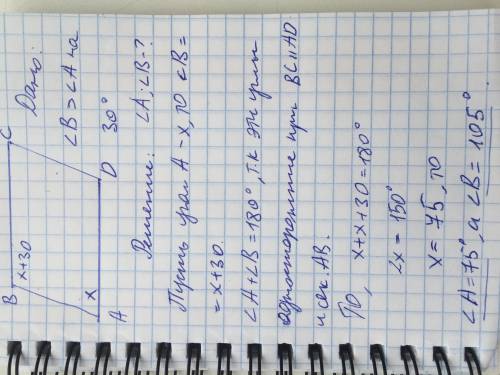 B
C
x+30
x
A
D
Дано:
∠B > ∠A на
30°
∠A; ∠B-?
Решение:
Пусть угол A - x, то ∠B=
= x+30.
∠A+∠B=180°, т.к эти углы
односторонние при BC||AD
и сек. AB.
То, x+x+30=180°
2x = 150°
x = 75, то
∠A=75°, а ∠B = 105°